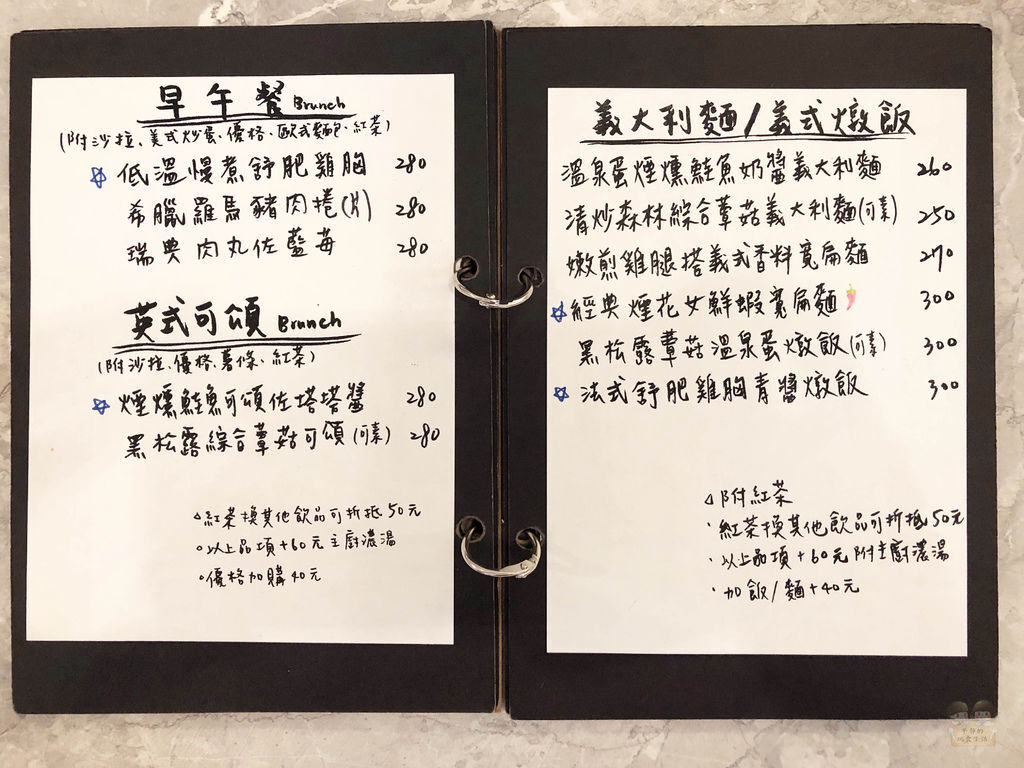 早午餐 Brunch
(附沙拉、美式炒蛋、優格、歐式麵包、紅茶)
☆ 低溫慢煮舒肥雞胸 280
希臘羅馬豬肉捲(片) 280
瑞典肉丸佐藍莓 280
英式可頌 Brunch
(附沙拉、優格、薯條、紅茶)
☆ 煙燻鮭魚可頌佐塔塔醬 280
黑松露綜合蕈菇可頌(可素) 280
△紅茶換其他飲品可折抵50元
○以上品項+60元主廚濃湯
○優格加購40元
義大利麵/義式燉飯
溫泉蛋煙燻鮭魚奶醬義大利麵 260
清炒森林綜合蕈菇義大利麵(可素) 250
嫩煎雞腿搭義式香料寬扁麵 270
☆ 經典煙花女鮮蝦寬扁麵 300
黑松露蕈菇溫泉蛋燉飯(可素) 300
☆ 法式舒肥雞胸青醬燉飯 300
△附紅茶
·紅茶換其他飲品可折抵50元
·以上品項+60元附主廚濃湯
·加飯/麵+40元